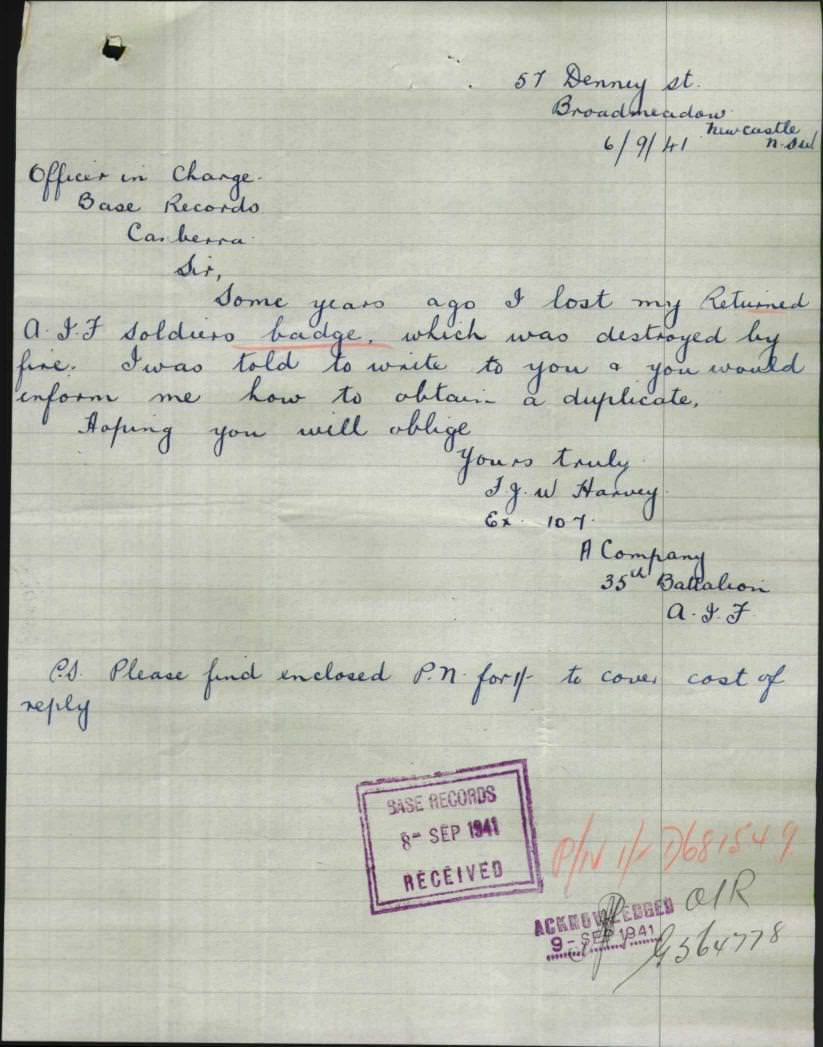 57 Denney st.
Broadmeadow
Newcastle
6/9/41 N.SW
Officer in Charge.
Base Records
Canberra.
Sir,
Some years ago I lost my Returned
A.I.F soldiers badge, which was destroyed by
fire. I was told to write to you & you would
inform me how to obtain a duplicate.
Hoping you will oblige
Yours truly
J.W Harvey
Ex. 107.
A Company
35th Battalion
A.I.F
P.S. Please find enclosed P.N. for 1/- to cover cost of
reply
BASE RECORDS
8- SEP 1941
RECEIVED
P/N 1/- D681549
ACKNOWLEDGED
9- SEP 1941
G564778